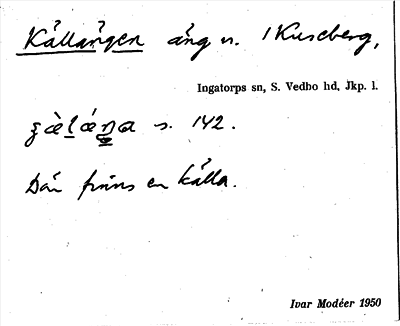 Källängen äng n. i Kuseberg,
Ingatorps sn, S. Vedbo hd, Jkp. l.
s. 142.
Där finns en källa.
Ivar Modéer 1950